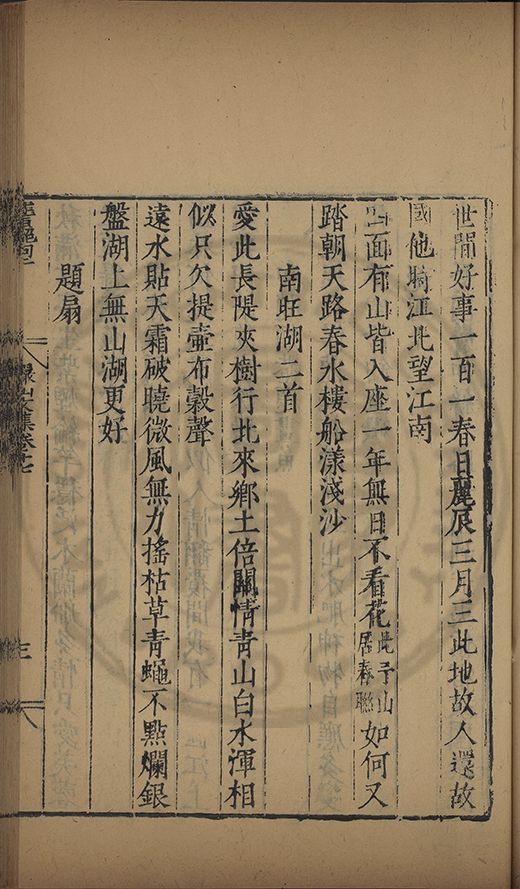 世閒好事一百一春日麗辰三月三此地故人還故
國他時江北望江南
四面有山皆入座一年無日不看花此予山居春聯如何又
踏朝天路春水樓船漾淺沙
南旺湖二首
愛此長隄夾樹行北來鄉土倍關情青山白水渾相
似只欠提壺布穀聲
遠水貼天霜破曉微風無力搖枯草青蠅不點爛銀
盤湖上無山湖更好
題扇